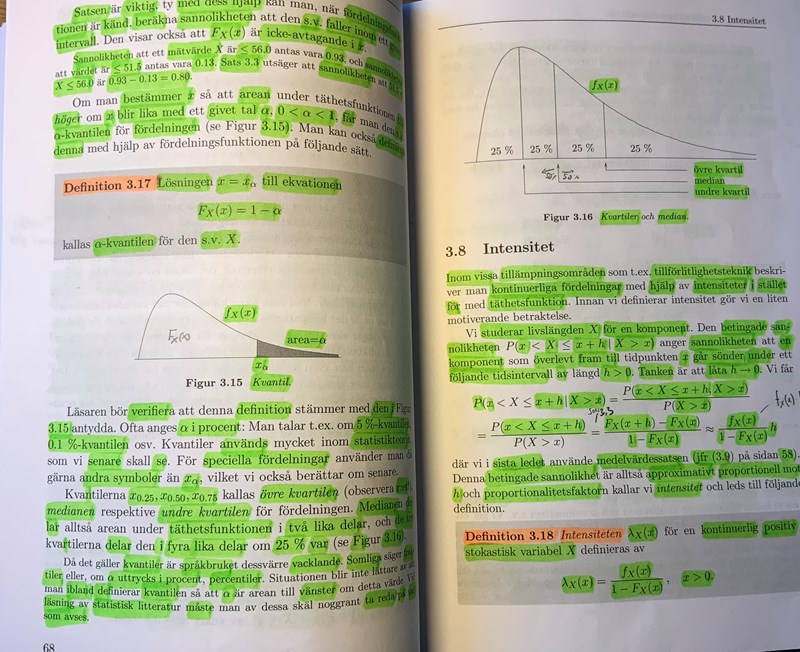 Satsen är viktig, ty med dess hjälp kan man, när fördelningsfunk-
tionen är känd, beräkna sannolikheten att den s.v. faller inom ett
intervall. Den visar också att F_X(x) är icke-avtagande i x.
Sannolikheten att ett mätvärde X är ≤ 56.0 antas vara 0.93, och sannolikheten
att värdet är ≤ 51.5 antas vara 0.13. Sats 3.3 utsäger att sannolikheten att
X ≤ 56.0 är 0.93 − 0.13 = 0.80.
Om man bestämmer x så att arean under täthetsfunktionen
höger om x blir lika med ett givet tal α, 0 < α < 1, får man den
α-kvantilen för fördelningen (se Figur 3.15). Man kan också
denna med hjälp av fördelningsfunktionen på följande sätt.
Definition 3.17 Lösningen x = x_α till ekvationen
F_X(x) = 1 − α
kallas α-kvantilen för den s.v. X.
f_X(x)
F_X(x)
area=α
x_α
Figur 3.15 Kvantil.
Läsaren bör verifiera att denna definition stämmer med den Figur
3.15 antydda. Ofta anges α i procent: Man talar t.ex. om 5 %-kvantilen,
0.1 %-kvantilen osv. Kvantiler används mycket inom statistikteorin,
som vi senare skall se. För speciella fördelningar använder man
gärna andra symboler än x_α, vilket vi också berättar om senare.
Kvantilerna x_0.25, x_0.50, x_0.75 kallas övre kvartilen (observera
medianen respektive undre kvartilen för fördelningen. Medianen de-
lar alltså arean under täthetsfunktionen i två lika delar, och de
kvartilerna delar den i fyra lika delar om 25 % var (se Figur 3.16).
Då det gäller kvantiler är språkbruket dessvärre vacklande. Somliga säger
tiler eller, om α uttrycks i procent, percentiler. Situationen blir inte lättare av att
man ibland definierar kvantilen så att α är arean till vänster om detta värde. Vid
läsning av statistisk litteratur måste man av dessa skäl noggrant ta reda på
som avses.
68
3.8 Intensitet
f_X(x)
25 % 25 % 25 % 25 %
50% 50%
övre kvartil
median
undre kvartil
Figur 3.16 Kvartiler och median.
3.8 Intensitet
Inom vissa tillämpningsområden som t.ex. tillförlitlighetsteknik beskri-
ver man kontinuerliga fördelningar med hjälp av intensiteter i stället
för med täthetsfunktion. Innan vi definierar intensitet gör vi en liten
motiverande betraktelse.
Vi studerar livslängden X för en komponent. Den betingade san-
nolikheten P(x < X ≤ x + h | X > x) anger sannolikheten att en
komponent som överlevt fram till tidpunkten x går sönder under ett
följande tidsintervall av längd h > 0. Tanken är att låta h → 0. Vi får
P(x < X ≤ x + h | X > x) = P(x < X ≤ x + h, X > x) / P(X > x)
sats 3.3
f_X(x)
= P(x < X ≤ x + h) / P(X > x) = F_X(x + h) − F_X(x) / 1 − F_X(x) ≈ f_X(x) / 1 − F_X(x) h
där vi i sista ledet använde medelvärdessatsen (jfr (3.9) på sidan 58).
Denna betingade sannolikhet är alltså approximativt proportionell mot
h och proportionalitetsfaktorn kallar vi intensitet och leds till följande
definition.
Definition 3.18 Intensiteten λ_X(x) för en kontinuerlig positiv
stokastisk variabel X definieras av
λ_X(x) = f_X(x) / 1 − F_X(x), x > 0.